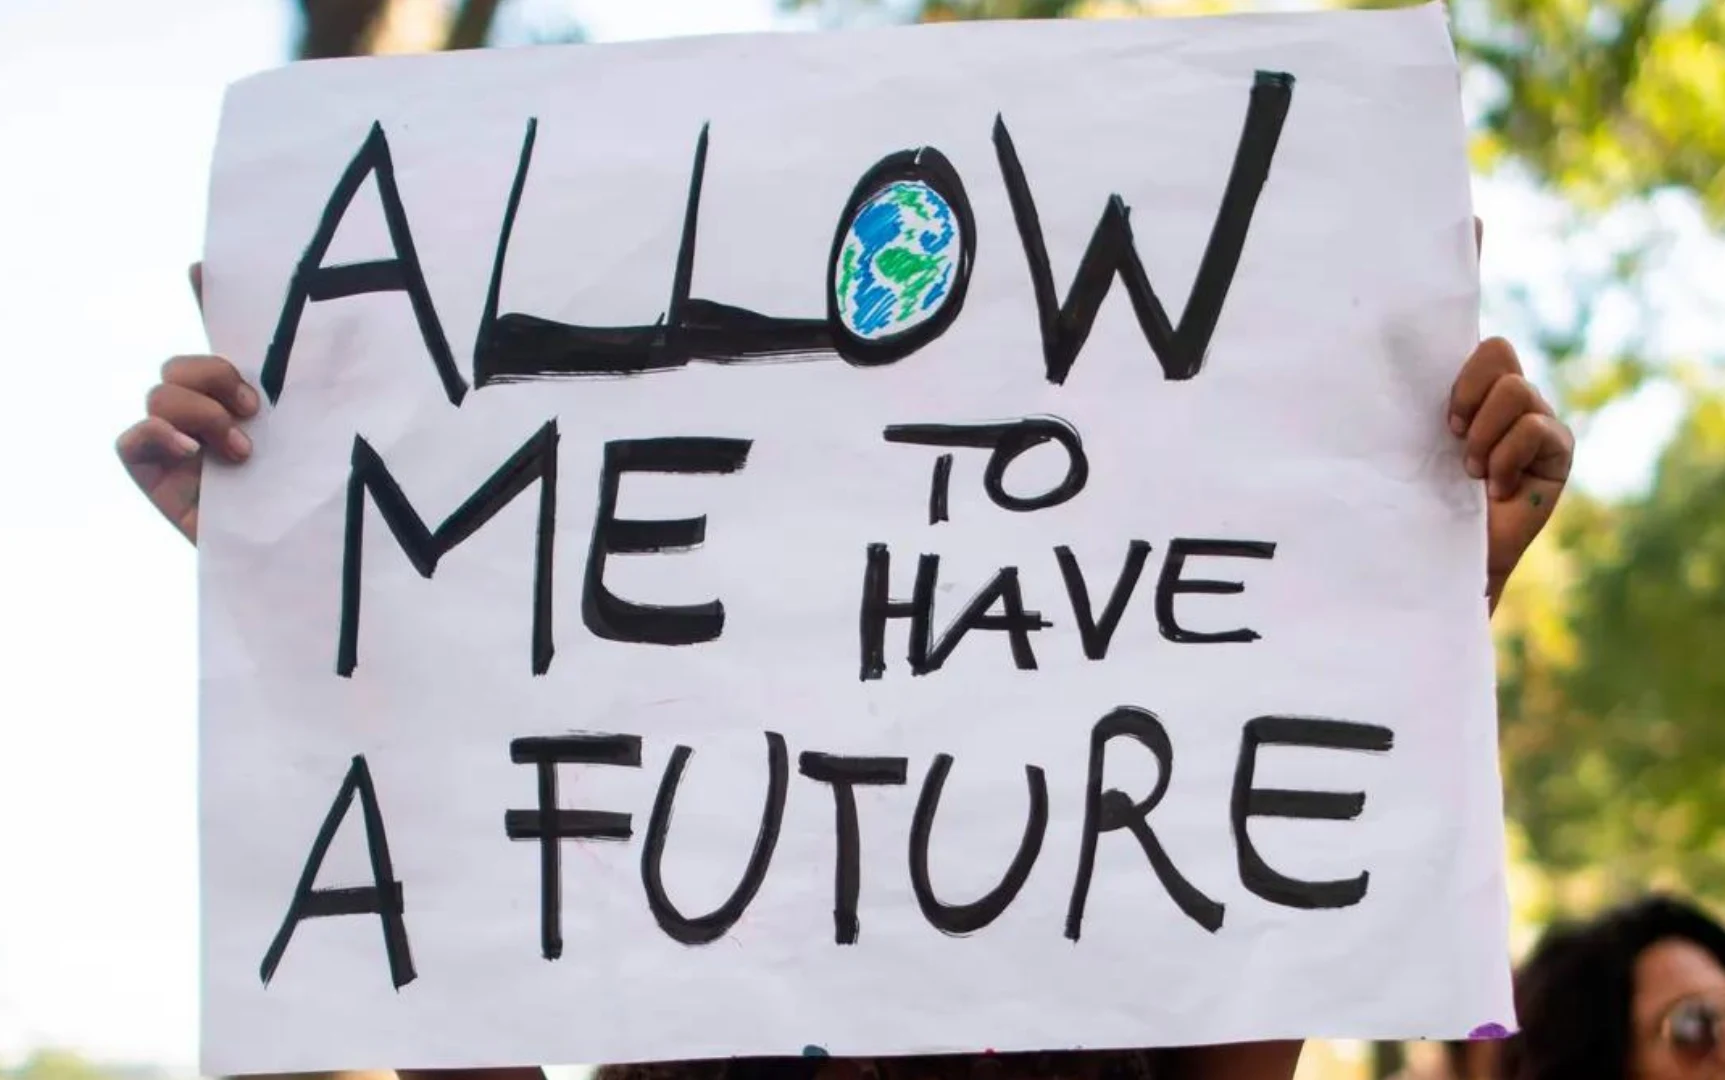 ALLOW
ME TO
HAVE
A FUTURE